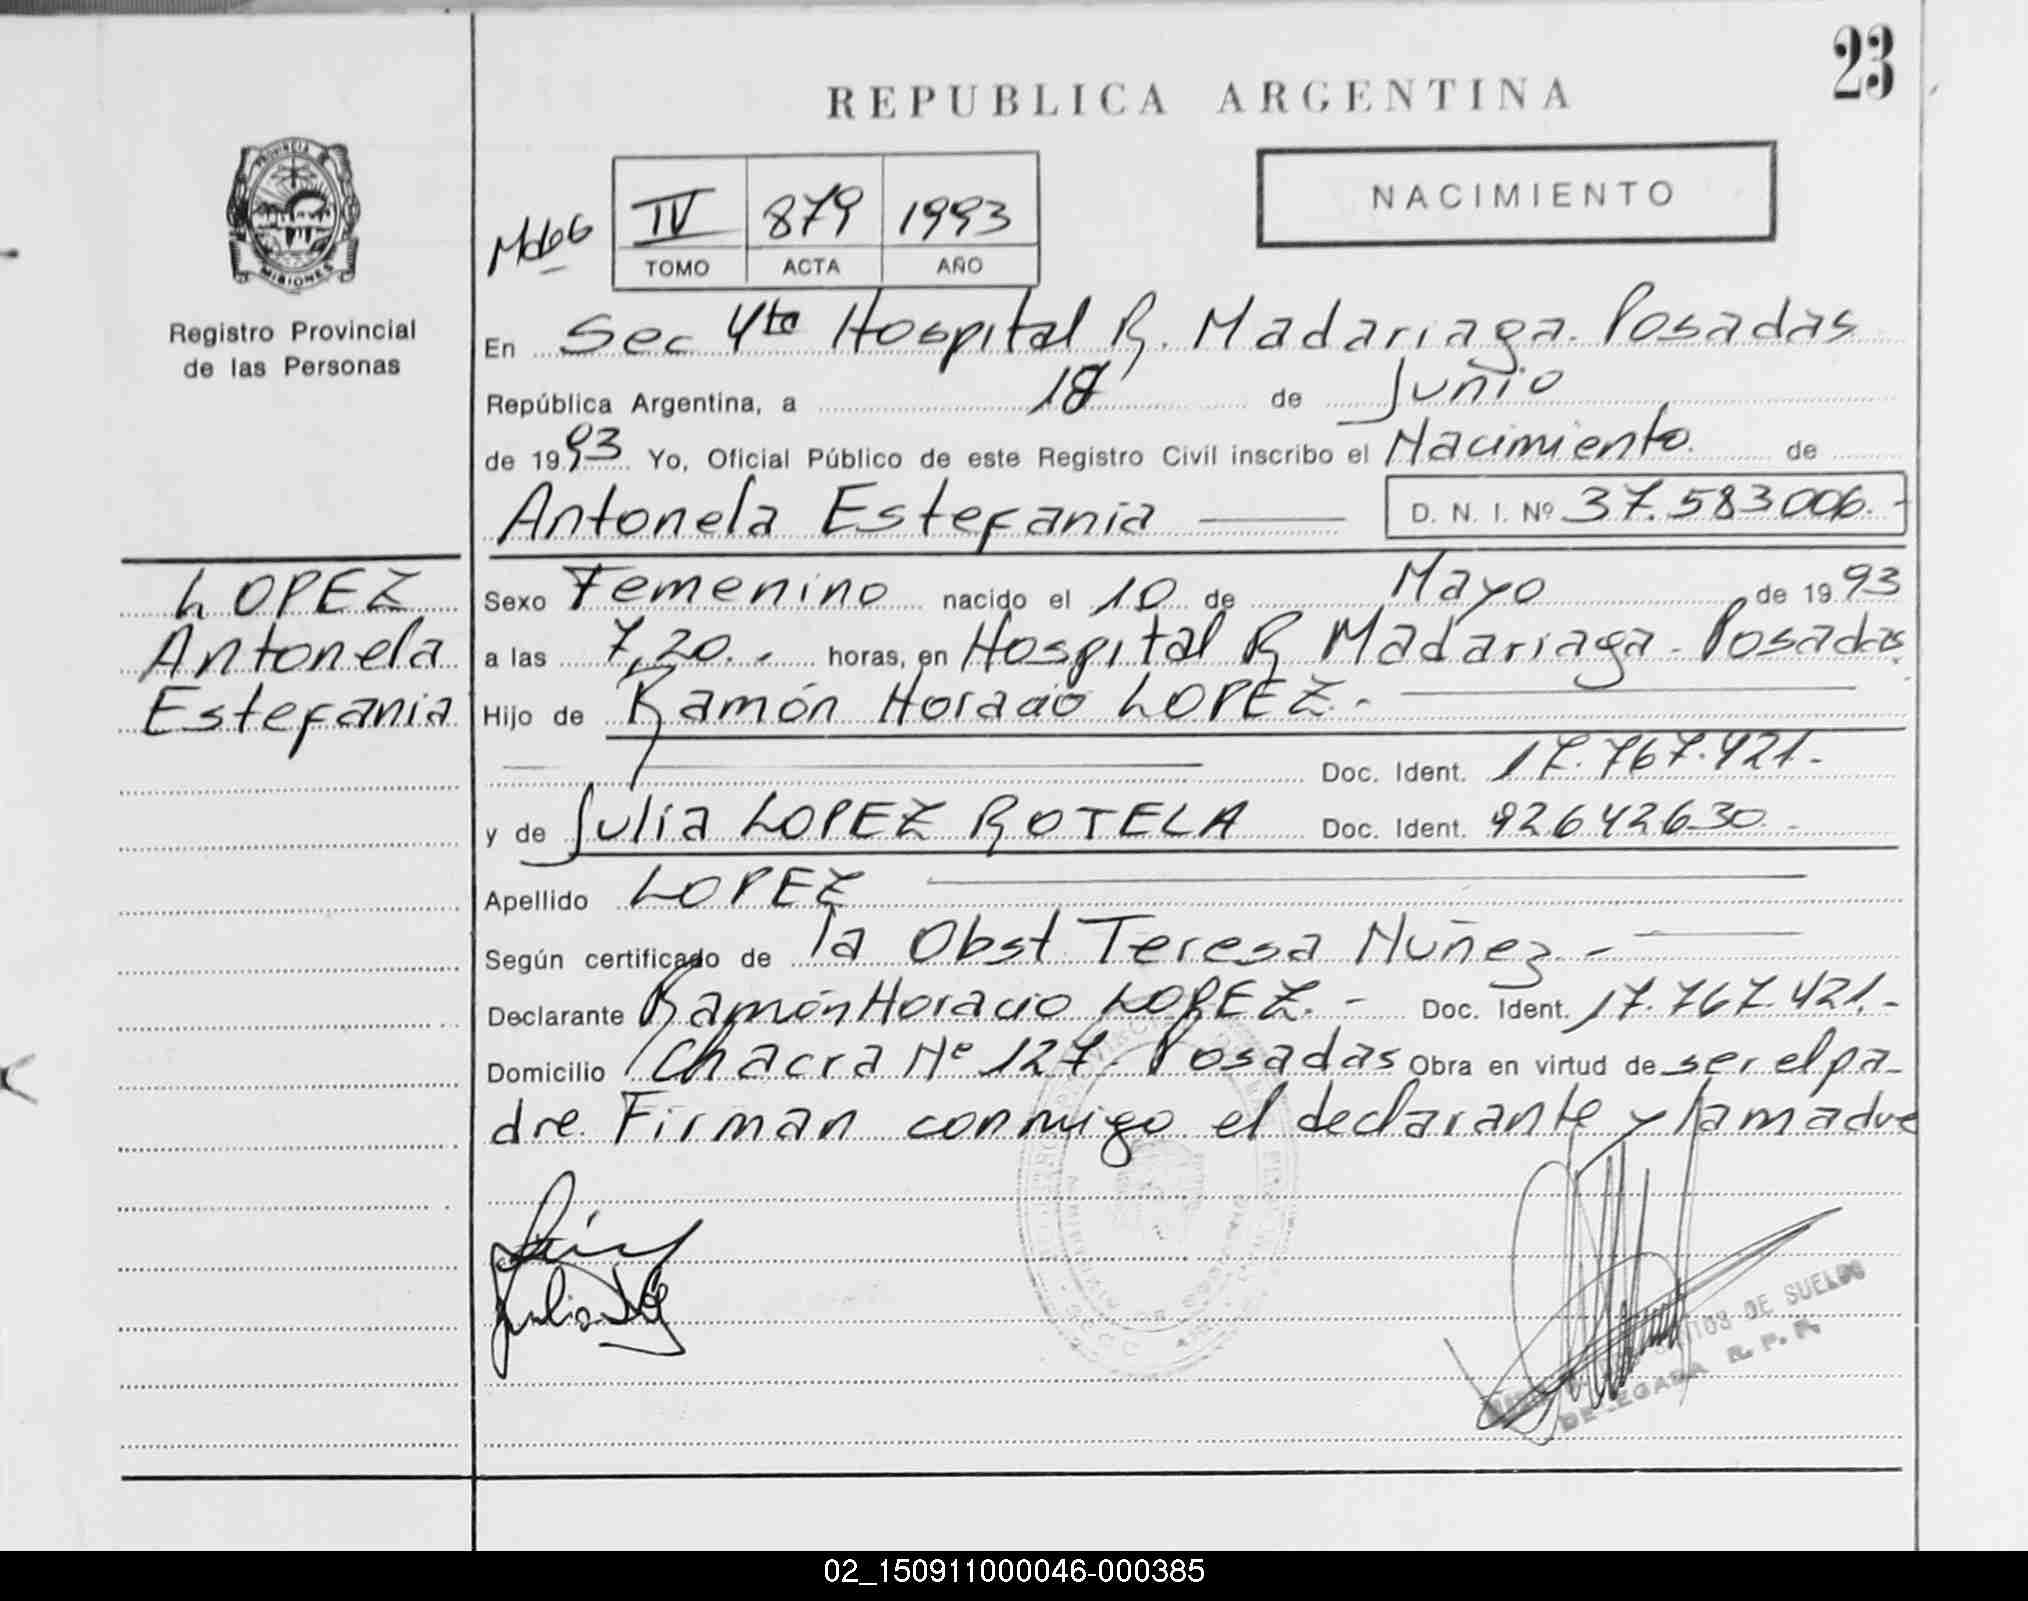 23
REPUBLICA ARGENTINA
PROVINCIA
MISIONES
Registro Provincial
de las Personas
NACIMIENTO
IV 879 1993
TOMO ACTA AÑO
En Sec 4ta Hospital R. Madariaga. Posadas
República Argentina, a 18 de Junio
de 1993 Yo, Oficial Público de este Registro Civil inscribo el Nacimiento. de
Antonela Estefania D. N. I. Nº 37.583006.-
LOPEZ
Antonela
Estefania
Sexo Femenino nacido el 10 de Mayo de 1993
a las 7,20.- horas, en Hospital R Madariaga - Posadas
Hijo de Ramón Horacio LOPEZ.-
Doc. Ident. 17.767.421.-
y de Julia LOPEZ ROTELA Doc. Ident. 92642630.-
Apellido LOPEZ
Según certificado de la Obst Teresa Nuñez.-
Declarante Ramón Horacio LOPEZ.- Doc. Ident. 17.767.421.-
Domicilio Chacra Nº 127 - Posadas Obra en virtud de ser el pa-
dre. Firman conmigo el declarante y la madre
Julia
DE SUELDO
DELEGADA R. P. P.
02_150911000046-000385